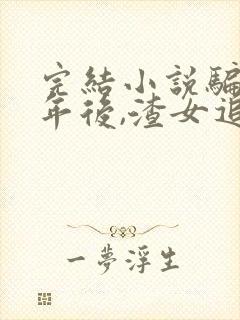 完結小説騙
年後,渣女追
一夢浮生